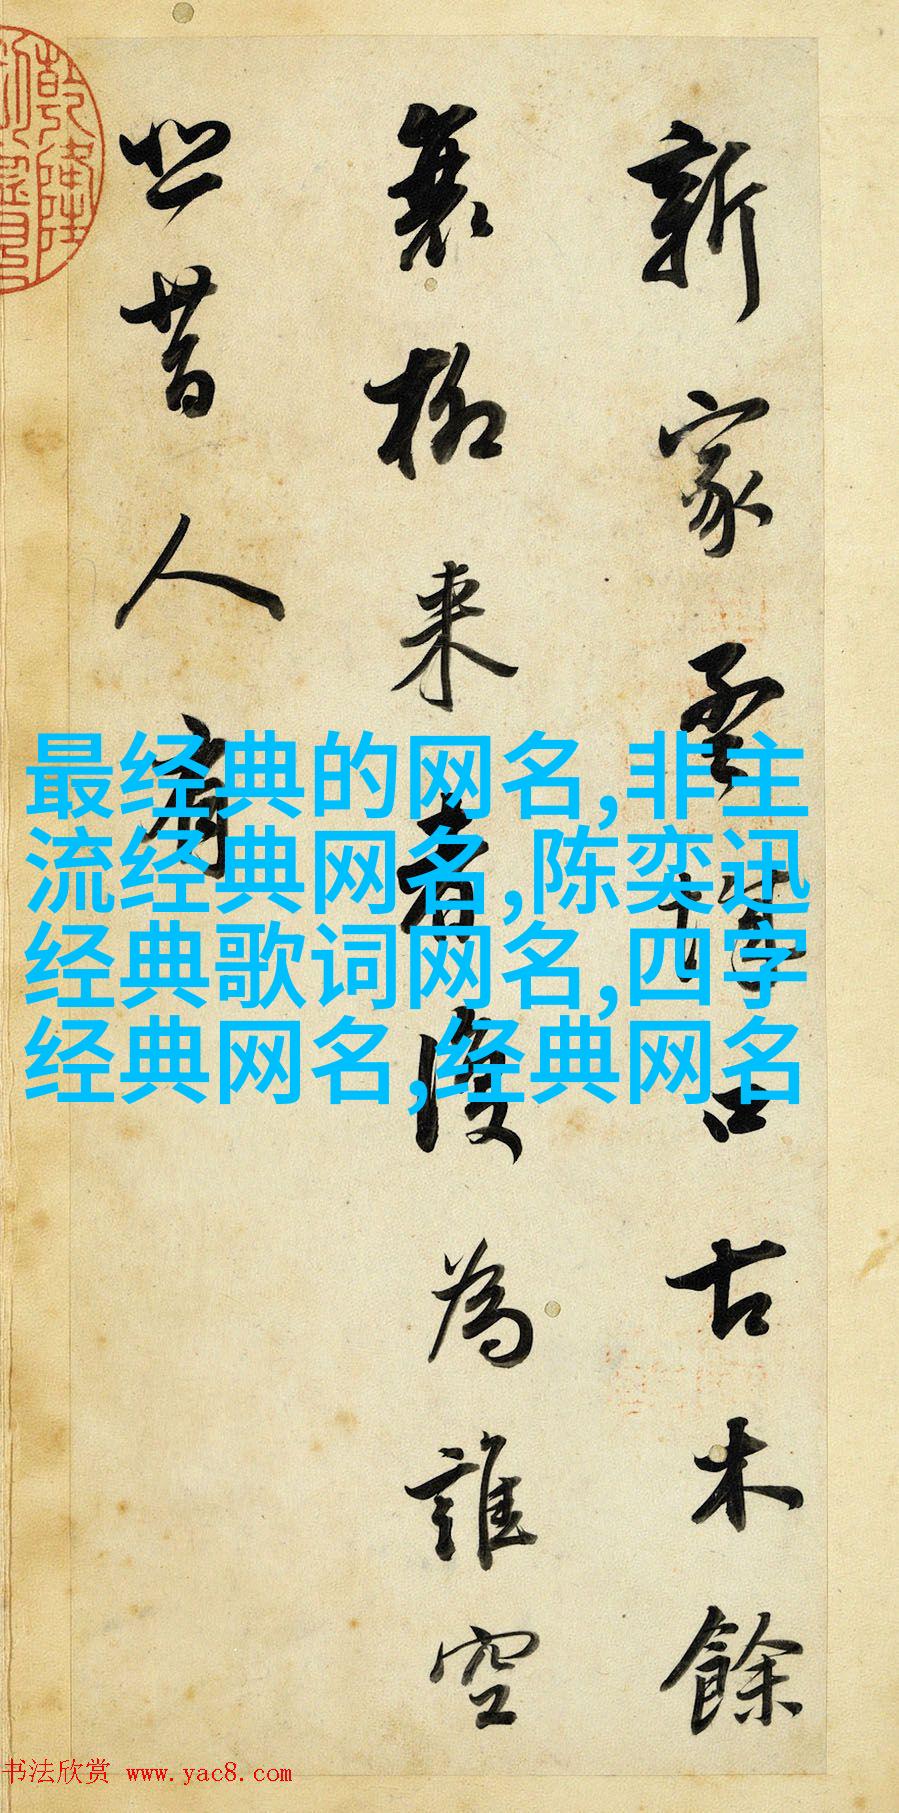 新家孟城口古木餘
衰柳来者復為誰空
悲昔人有
乾隆
最经典的网名,非主
流经典网名,陈奕迅
经典歌词网名,四字
经典网名,经典网名
书法欣赏 www.yac8.com